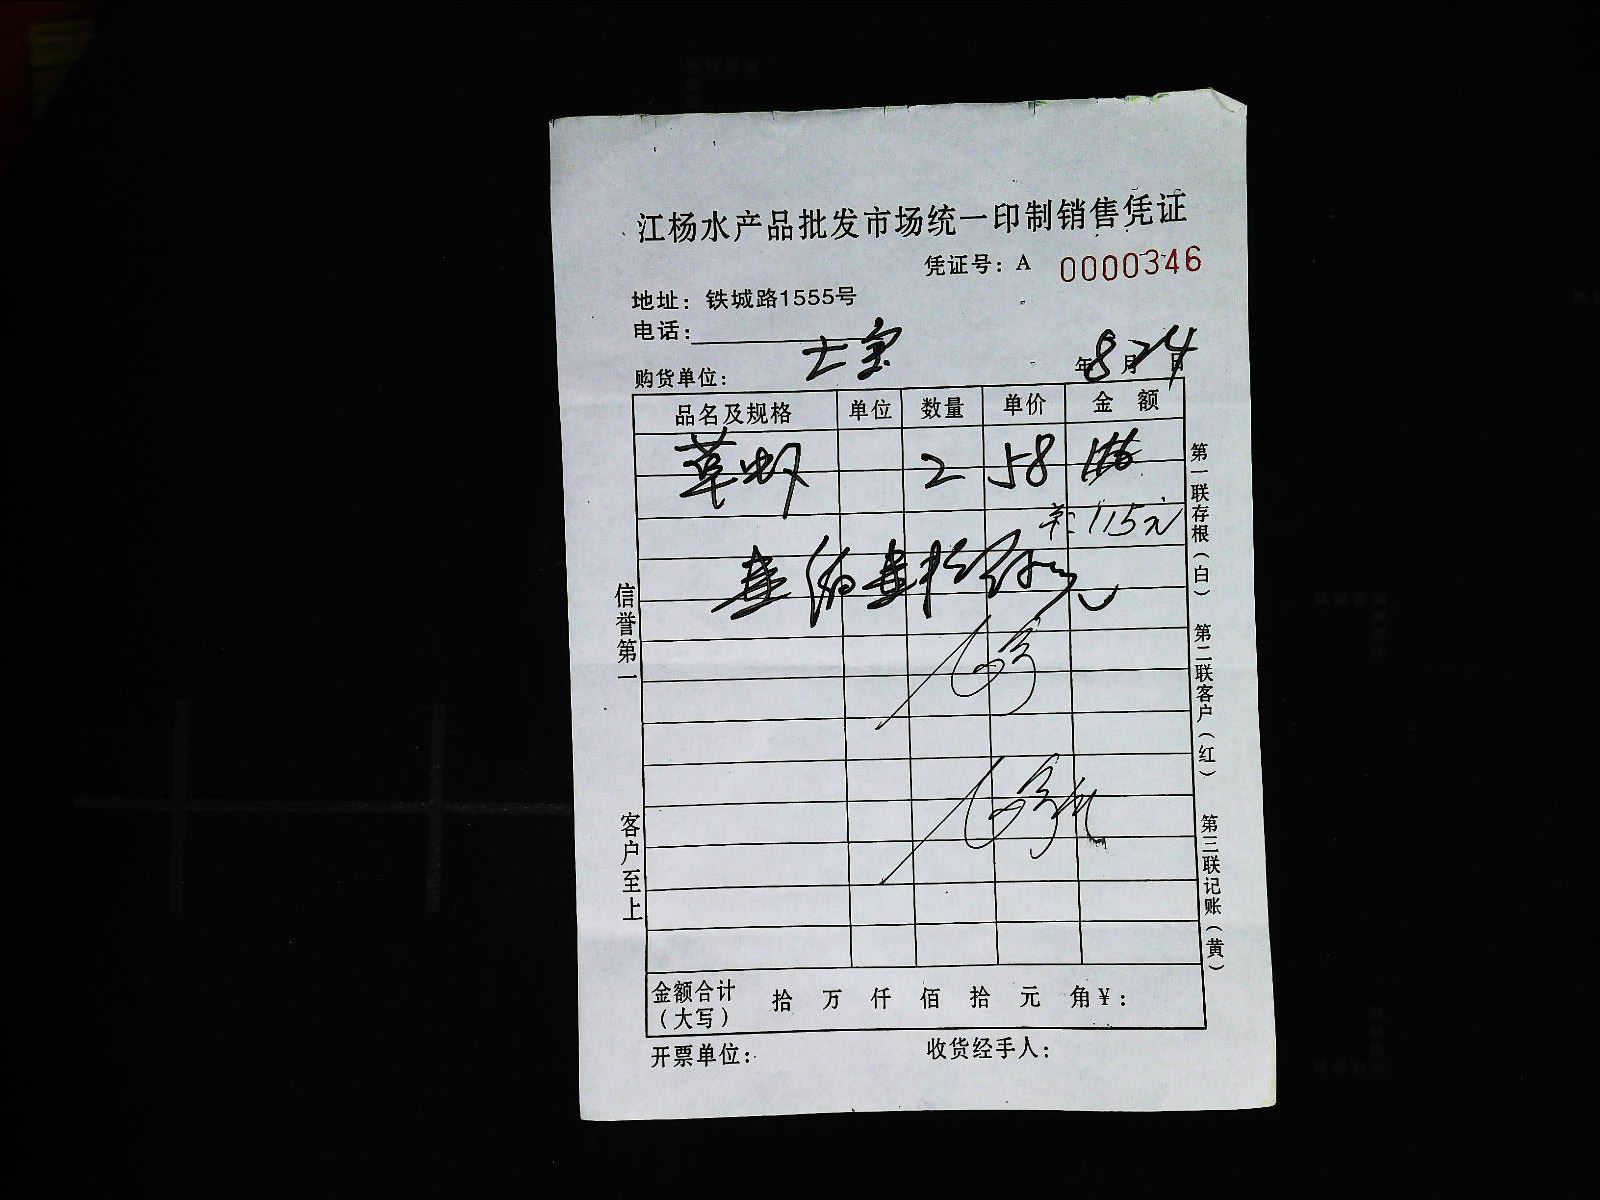 江杨水产品批发市场统一印制销售凭证
凭证号：A 0000346
地址：铁城路1555号
电话：
购货单位： 士宝 年8月24日
品名及规格 单位 数量 单价 金额
草虾 2 58
115元
壹佰壹拾伍元
金额合计（大写） 拾 万 仟 佰 拾 元 角￥：
开票单位： 收货经手人：
信誉第一
客户至上
第一联存根（白）
第二联客户（红）
第三联记账（黄）